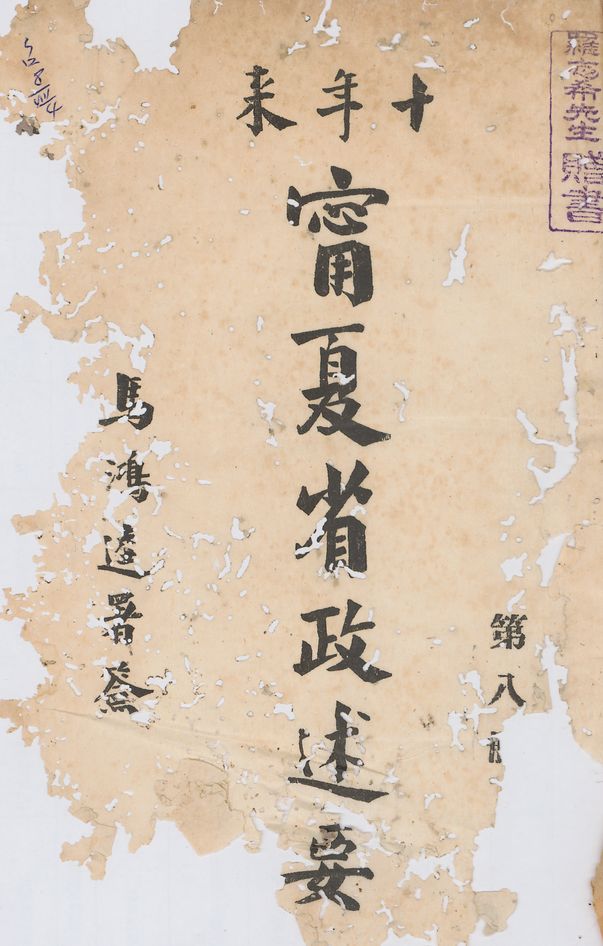 羅志希先生
贈書
十年来
甯夏省政述要
第八
馬鴻逵署簽